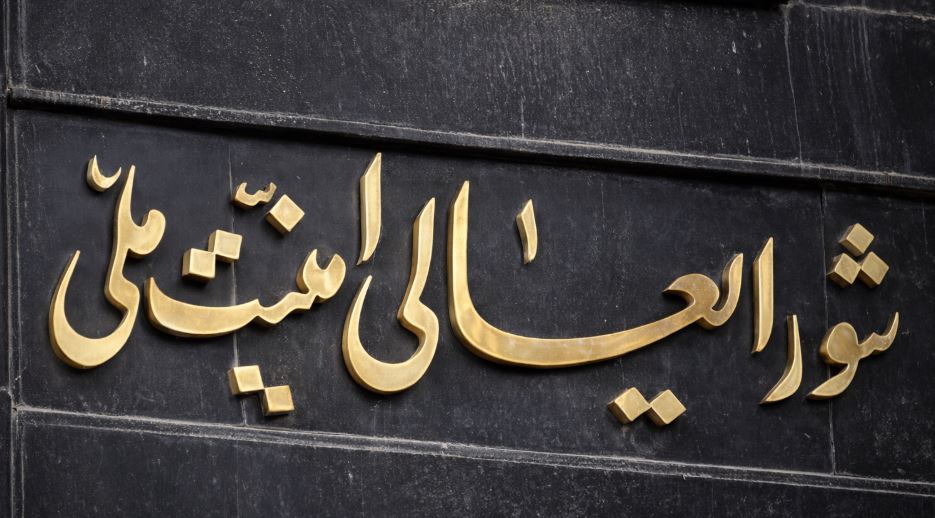 شورایعالی امنیّت ملی